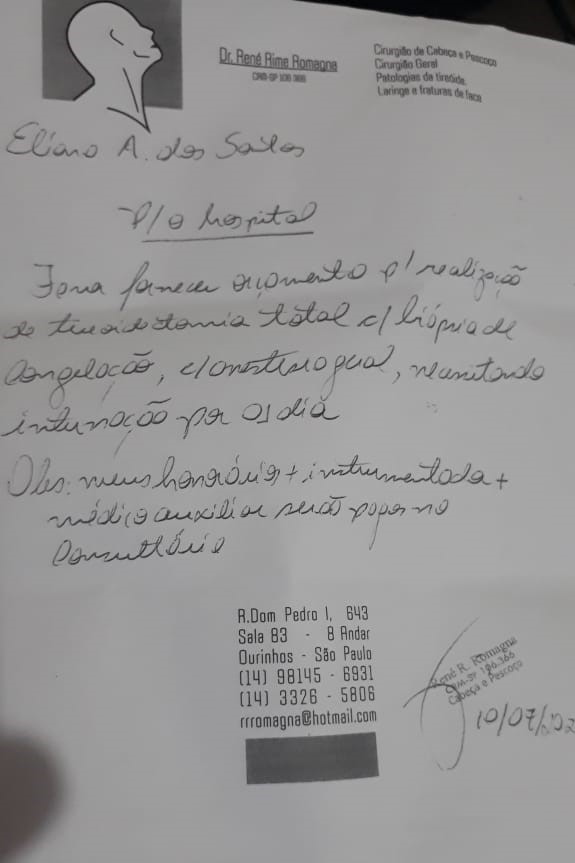 Dr. René Rime Romagna
CRM-SP 106 366
Cirurgião de Cabeça e Pescoço
Cirurgião Geral
Patologias da tireóide
Laringe e fraturas de face
Eliana A. dos Santos
P/ o hospital
Favor fornecer orçamento p/ realização
de tireoidectomia total c/ biópsia de
congelação, c/ anestesia geral, necessitando
internação por 01 dia
Obs: meus honorários + instrumentadora +
médico auxiliar serão pagos no
Consultório
R.Dom Pedro I, 643
Sala 83 - 8 Andar
Ourinhos - São Paulo
(14) 98145 - 6931
(14) 3326 - 5806
rrromagna@hotmail.com
René R. Romagna
CRM-SP 106.366
Cabeça e Pescoço
10/07/202